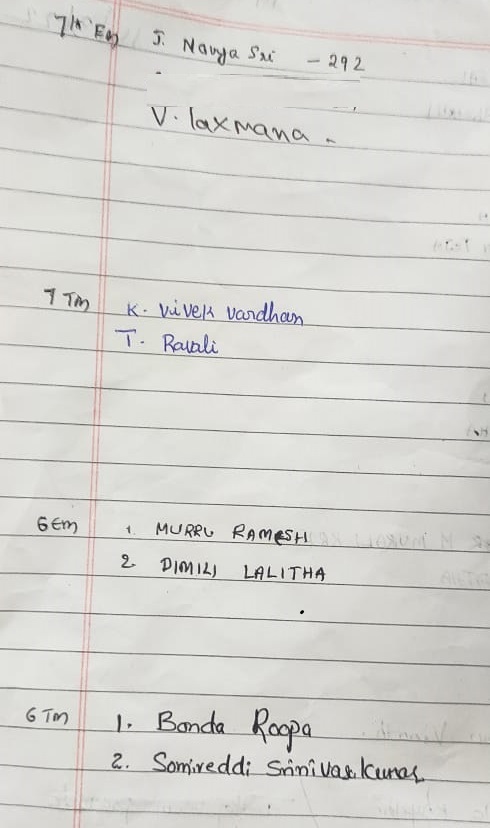 7th Em J. Navya Sri - 292
V. laxmana -
7 Tm K. Vivek Vardhan
T. Ravali
6 Em 1. MURRU RAMESH
2 DIMILI LALITHA
6 Tm 1. Bonda Roopa
2. Somireddi Srinivas Kumar